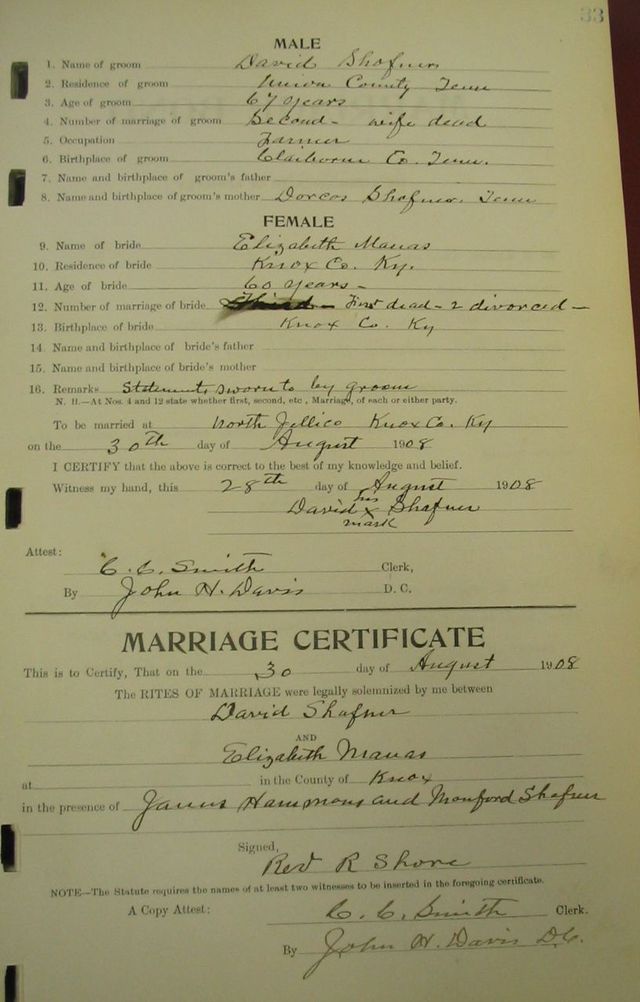 33
MALE
1. Name of groom David Shafner
2. Residence of groom Union County Tenn
3. Age of groom 67 years
4. Number of marriage of groom Second - wife dead
5. Occupation Farmer
6. Birthplace of groom Claiborne Co. Tenn.
7. Name and birthplace of groom's father
8. Name and birthplace of groom's mother Dorcas Shafner. Tenn
FEMALE
9. Name of bride Elizabeth Manas
10. Residence of bride Knox Co. Ky.
11. Age of bride 60 years -
12. Number of marriage of bride Third - First dead - 2 divorced -
13. Birthplace of bride Knox Co. Ky
14. Name and birthplace of bride's father
15. Name and birthplace of bride's mother
16. Remarks Statements sworn to by groom
N. B.—At Nos. 4 and 12 state whether first, second, etc., Marriage, of each or either party.
To be married at North Jellico Knox Co. Ky
on the 30th day of August 1908
I CERTIFY that the above is correct to the best of my knowledge and belief.
Witness my hand, this 28th day of August 1908
his
David x Shafner
mark
Attest:
C. C. Smith Clerk,
By John H. Davis D. C.
MARRIAGE CERTIFICATE
This is to Certify, That on the 30 day of August 1908
The RITES OF MARRIAGE were legally solemnized by me between
David Shafner
AND
Elizabeth Manas
at in the County of Knox
in the presence of James Hammons and Monford Shafner
Signed,
Rev R Shore
NOTE—The Statute requires the names of at least two witnesses to be inserted in the foregoing certificate.
A Copy Attest: C. C. Smith Clerk.
By John H. Davis D.C.